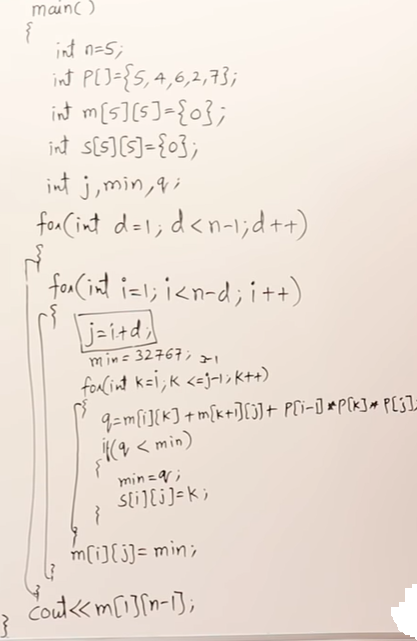 main()
{
int n=5;
int P[]={5,4,6,2,7};
int m[5][5]={0};
int s[5][5]={0};
int j,min,q;
for(int d=1; d<n-1;d++)
{
for(int i=1; i<n-d; i++)
{
j=i+d;
min=32767; 2-1
for(int k=i;k<=j-1;k++)
{
q=m[i][k]+m[k+1][j]+P[i-1]*P[k]*P[j];
if(q<min)
{
min=q;
s[i][j]=k;
}
}
m[i][j]=min;
}
}
cout<<m[1][n-1];
}